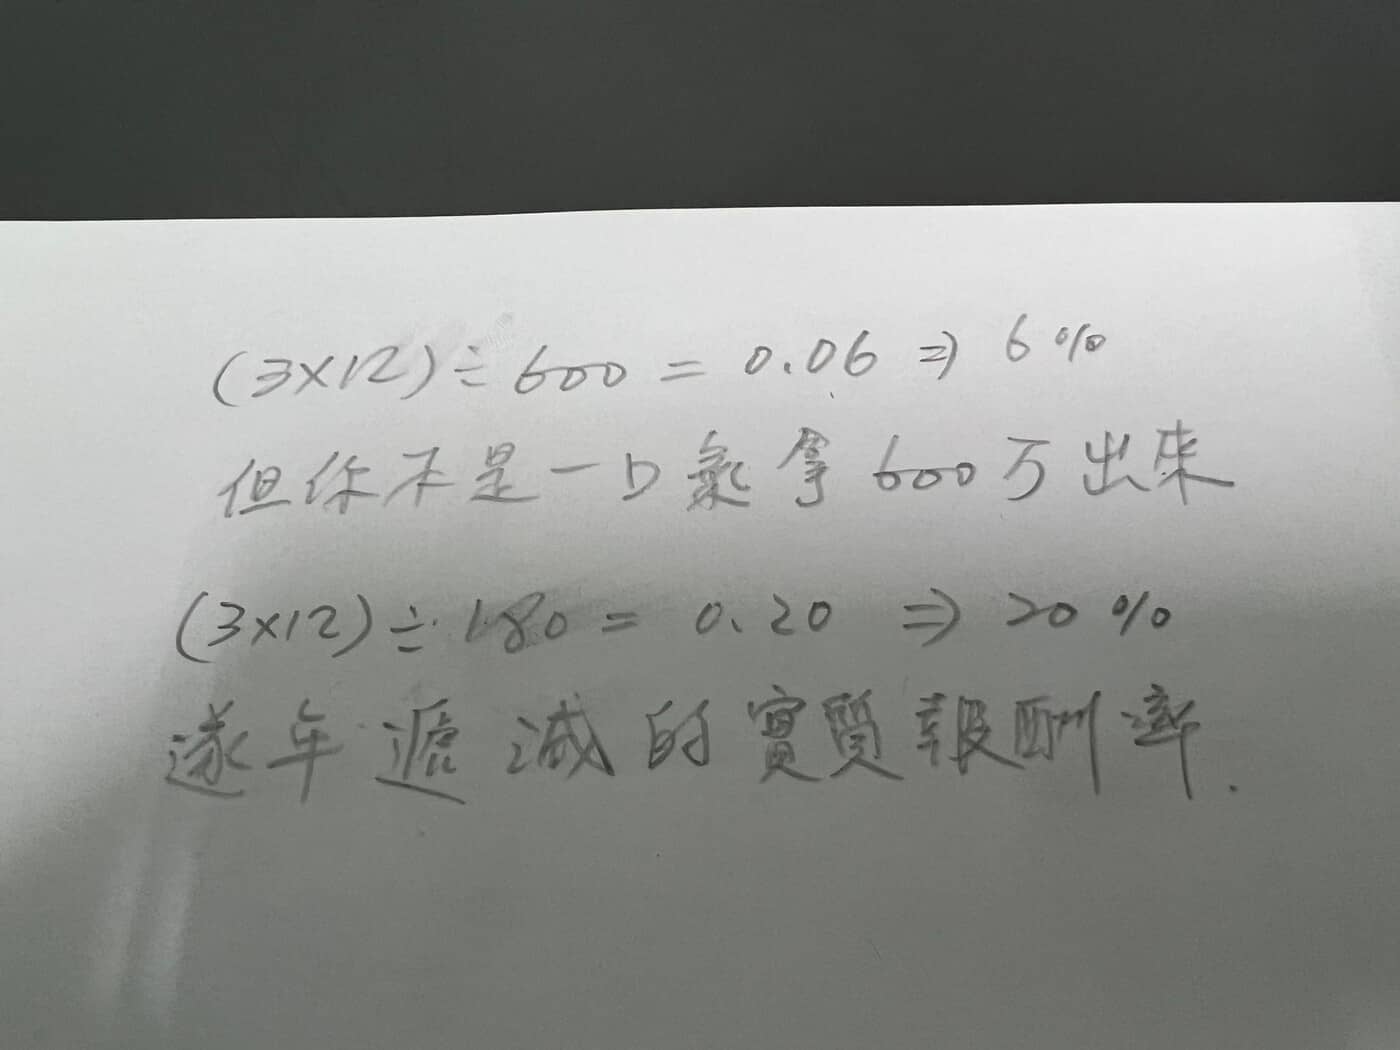 (3×12)÷600 = 0.06 ⇒ 6%
但你不是一口氣拿600万出來
(3×12)÷180 = 0.20 ⇒ 20%
逐年遞減的實質報酬率.